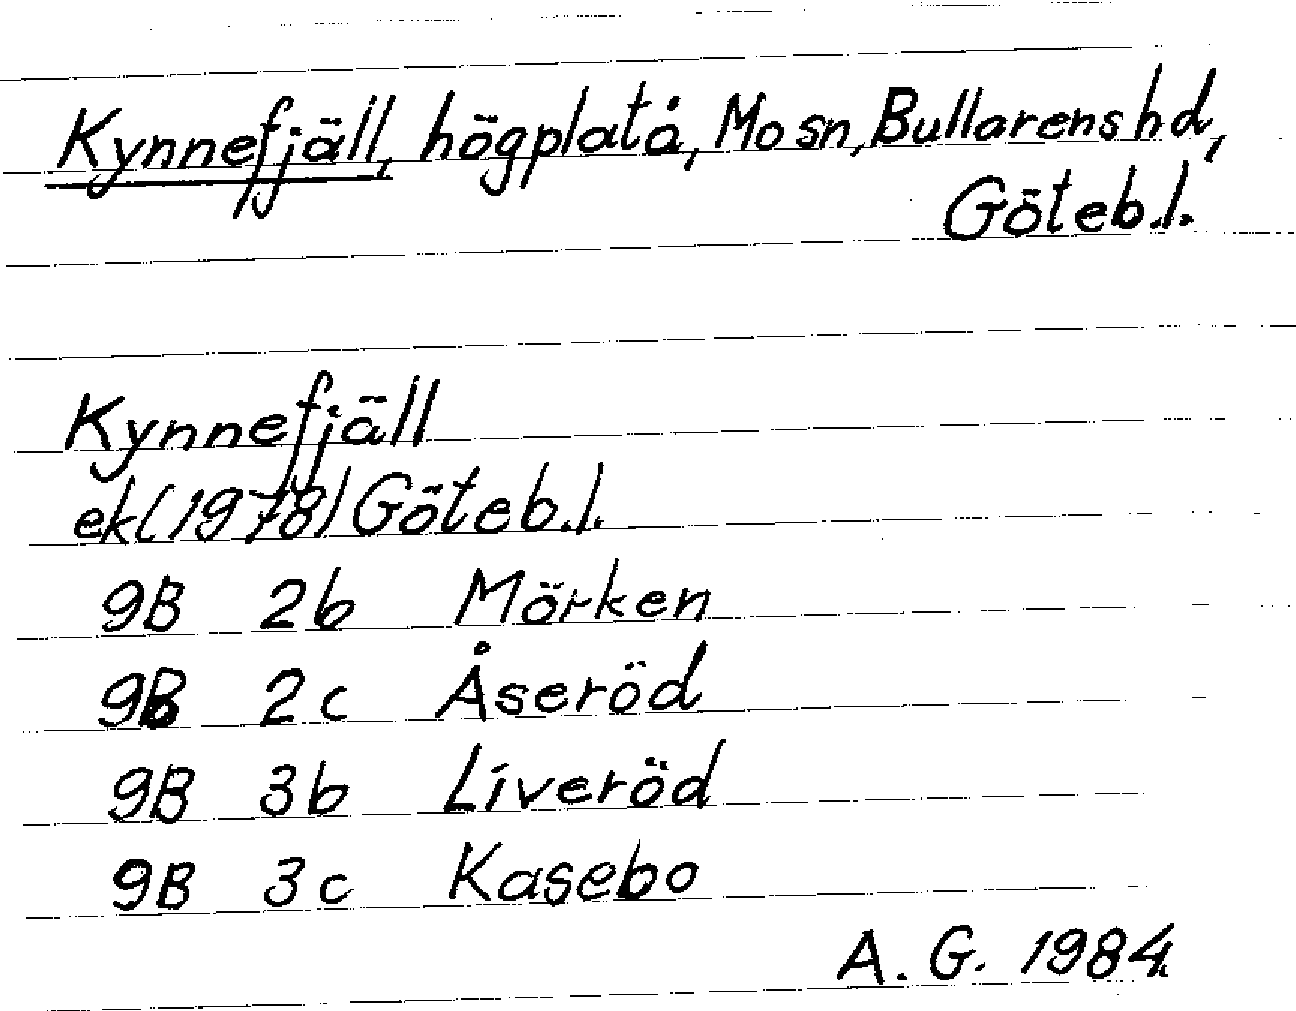 Kynnefjäll, högplatå, Mo sn, Bullarens hd,
Göteb.l.
Kynnefjäll
ek(1978) Göteb.l.
9B 2b Mörken
9B 2c Åseröd
9B 3b Liveröd
9B 3c Kasebo
A. G. 1984